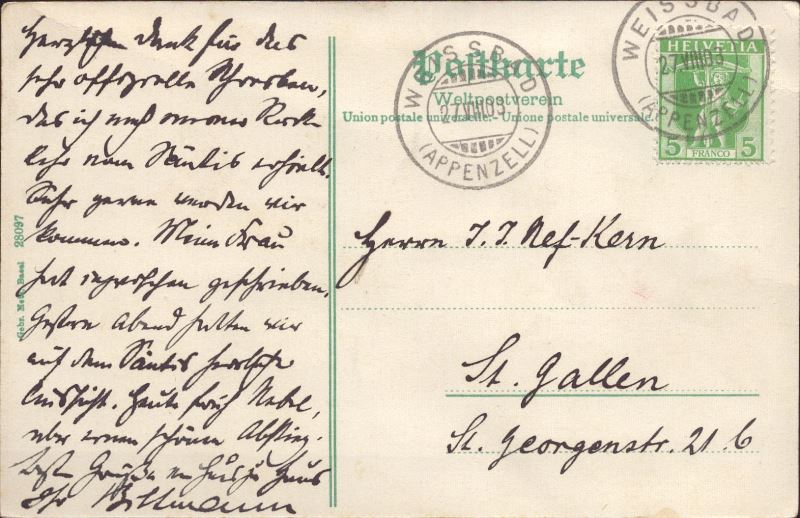 Herzlichen Dank für das
sehr offizielle Schreiben,
das ich nach meiner Rück-
kehr vom Säntis erhielt.
Sehr gerne werden wir
kommen. Meine Frau
hat inzwischen geschrieben.
Gestern Abend hatten wir
auf dem Säntis herrliche
Aussicht. Heute früh Nebel,
aber einen schönen Abstieg.
Beste Grüße von Haus zu Haus
Ihr
Gebr. Metz, Basel 28097
Postkarte
Weltpostverein
Union postale universelle. - Unione postale universale.
WEISSBAD
27.VIII.09
(APPENZELL)
WEISSBAD
27.VIII.09
(APPENZELL)
HELVETIA
5 FRANCO 5
Herrn J. J. Nef-Kern
St. Gallen
St. Georgenstr. 21 b